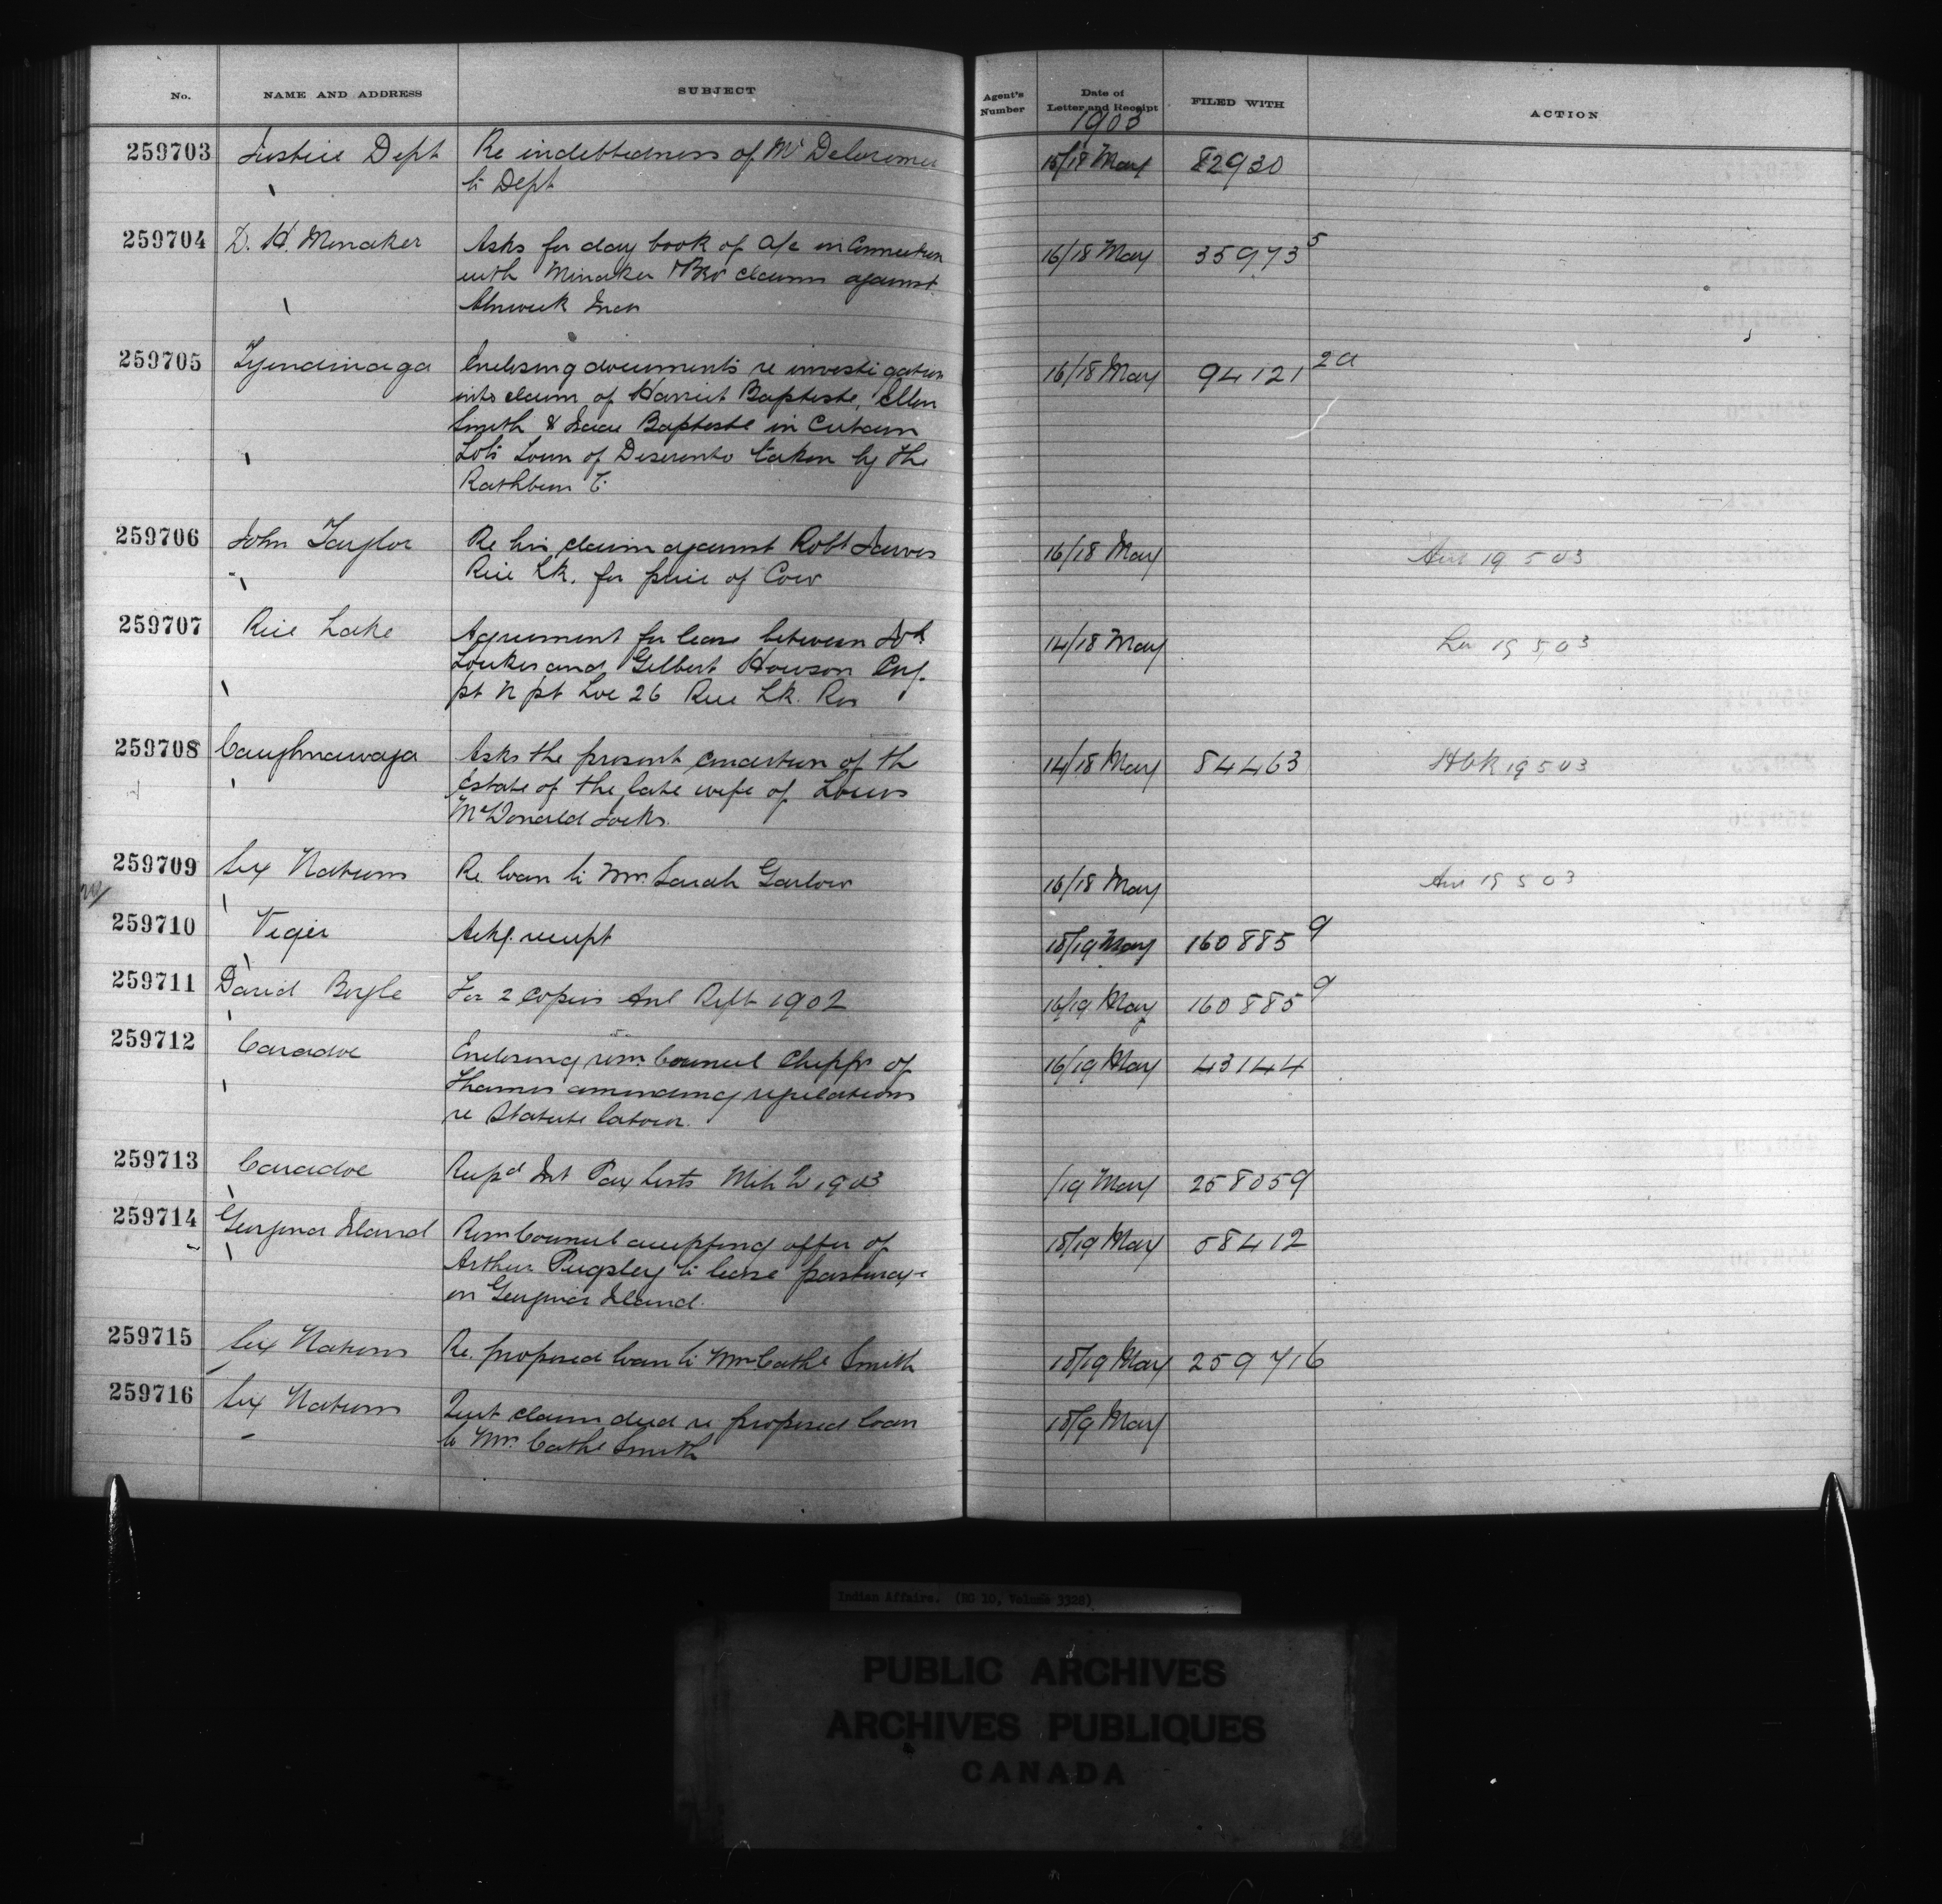 No. NAME AND ADDRESS SUBJECT Agent's Number Date of Letter and Receipt FILED WITH ACTION
1903
259703 Justice Dept Re indebtedness of Mr Delorimier 15/18 May 82930
to Dept
259704 D. H. Minaker Asks for day book of a/c in Connection 16/18 May 35973 5
with Minaker & Bro claim against
Alnwick Inds
259705 Tyendinaga Enclosing documents re investigation 16/18 May 94121 2a
into claim of Harriet Baptiste, Ellen
Smith & Isaac Baptiste in Certain
Lots Town of Deseronto taken by the
Rathbun Co
259706 John Taylor Re his claim against Robt Jarvis 16/18 May Ans 19 5 03
Rice Lk. for price of Cow
259707 Rice Lake Agreement for lease between 14/18 May 19 5 03
and Gilbert Howson
pt N pt Loc 26 Rice Lk. Res
259708 Caughnawaga Asks the present condition of the 14/18 May 84463 19 5 03
Estate of the late wife of Louis
McDonald Jocks.
259709 Six Nations Re. loan to Mrs. Sarah Garlow 16/18 May Ans 19 5 03
259710 Viger Ackg. receipt 18/19 May 160885 9
259711 David Boyle For 2 copies Anl Rept 1902 16/19 May 160885 9
259712 Caradoc Enclosing resn. Council Chipps of 16/19 May 43144
Thames amending regulations
re Statute labour.
259713 Caradoc Int Pay Lists Mch 1903 /19 May 258059
259714 Georgina Island Resn Council accepting offer of 18/19 May 58412
Arthur Pugsley to lease pasturage
on Georgina Island.
259715 Six Nations Re. proposed loan to Mrs Cathe Smith 18/19 May 259716
259716 Six Nations Quit claim deed re proposed loan 18/9 May
to Mrs. Cathe Smith
Indian Affairs. (RG 10, Volume 3328)
PUBLIC ARCHIVES
ARCHIVES PUBLIQUES
CANADA